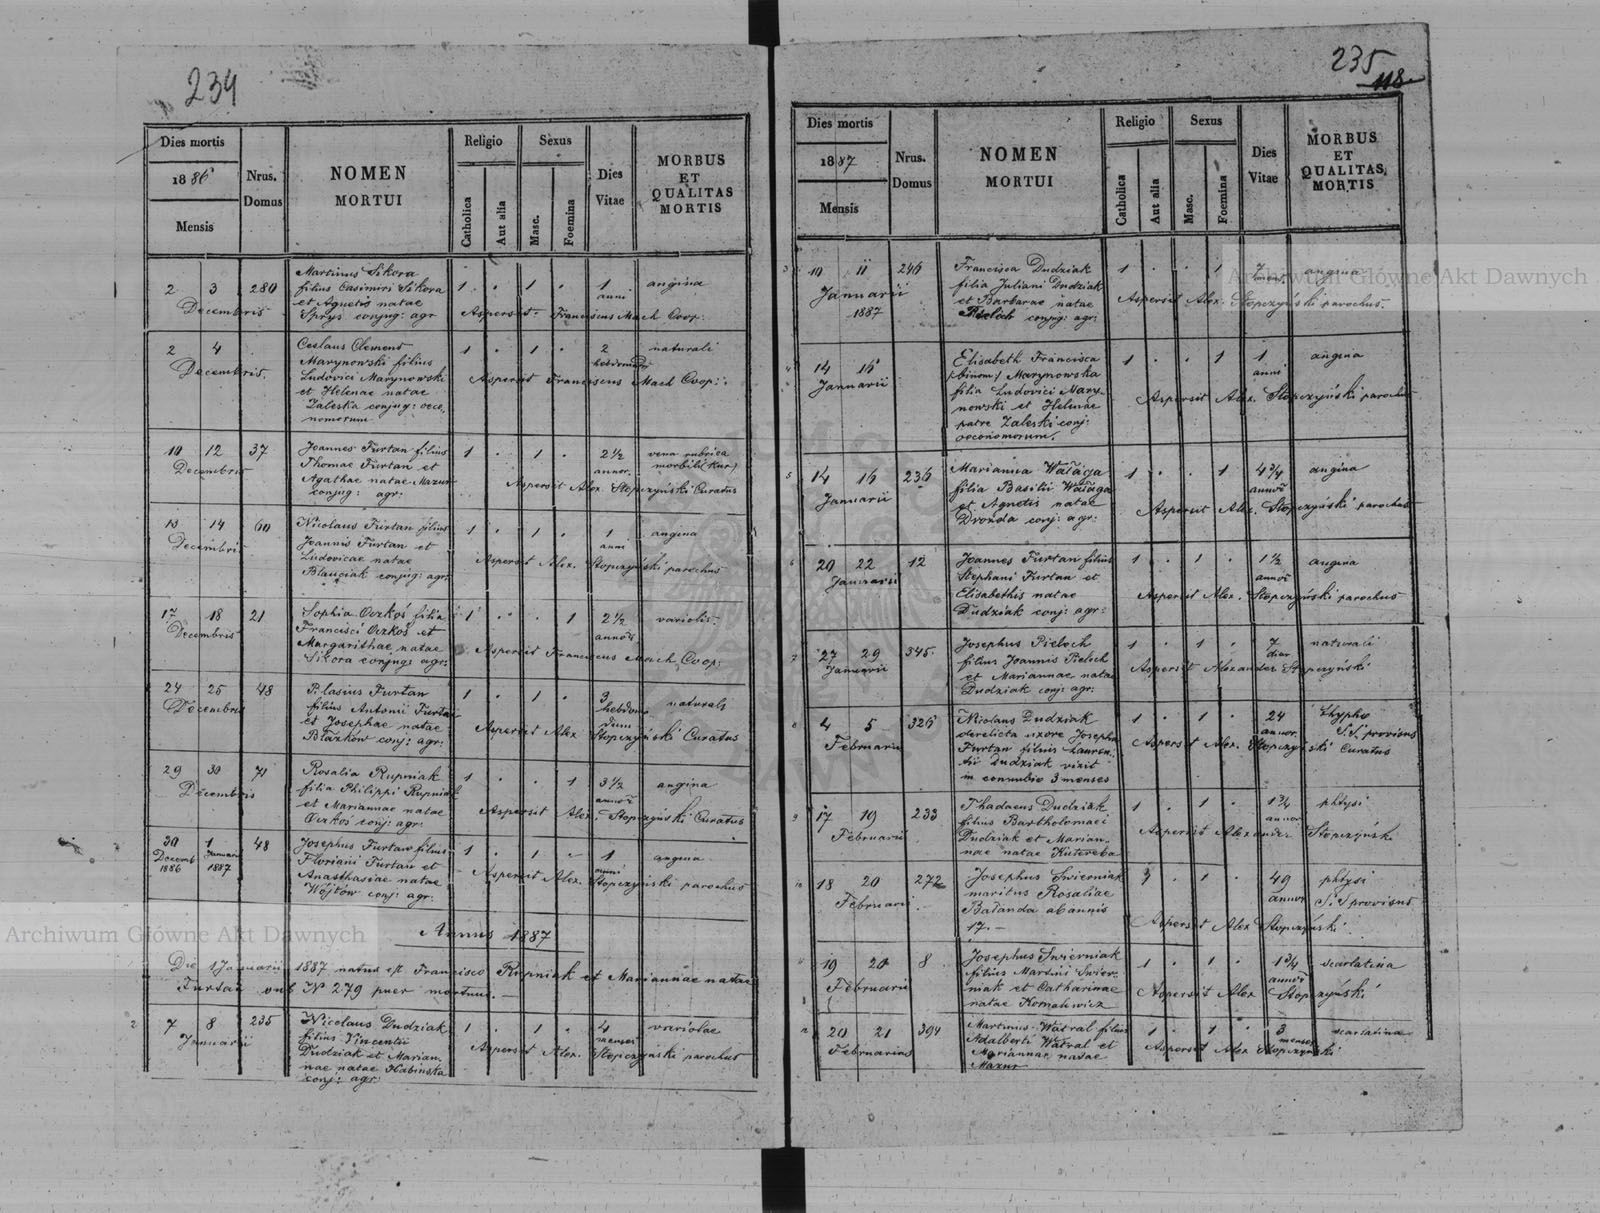 234
Dies mortis
1886
Mensis
Nrus. Domus
NOMEN
MORTUI
Religio
Catholica
Aut alia
Sexus
Masc.
Foemina
Dies Vitae
MORBUS
ET
QUALITAS
MORTIS
2 3 280 Martinus Sikora 1 . 1 . 1 angina
Decembris filius Casimiri Sikora anni
et Agnetis natae
Sprys conjug: agr Aspersit Franciscus Mach Coop:
2 4 Ceslaus Clemens 1 . 1 . 2 naturali
Decembris. Marynowski filius
Ludovici Marynowski Aspersit Franciscus Mach Coop:
et Helenae natae
Zaleska conjug: oeco,
nomorum
10 12 37 Joannes Furtan filius 1 . 1 . 2½ vena rubrica
Decembris Thomae Furtan et annor. morbili (Kur)
Agathae natae Mazur Aspersit Alex. Stopczyński Curatus
conjug: agr:
13 14 60 Nicolaus Furtan filius 1 . 1 . 1 angina
Decembris Joannis Furtan et anni
Ludovicae natae Aspersit Alex. Stopczyński parochus
Blauciak conjug: agr:
17 18 21 Sophia Oczkoś filia 1 . . 1 2½ variolis
Decembris Francisci Oczkoś et annor
Margarithae natae Aspersit Franciscus Mach Coop:
Sikora conjug: agr:
24 25 48 Blasius Furtan 1 . 1 . 3 naturali
Decembris filius Antonii Furtan hebdom
et Josephae natae dum
Błażków conj: agr: Aspersit Alex Stopczyński Curatus
29 30 71 Rosalia Rupniak 1 . . 1 3½ angina
Decembris filia Philippi Rupniak annor
et Mariannae natae Aspersit Alex. Stopczyński Curatus
Oczkoś conj: agr:
30 1 48 Josephus Furtan filius 1 . 1 - 1 angina
Decemb Januarii Floriani Furtan et anni
1886 1887 Anasthasiae natae Aspersit Alex. Stopczyński parochus
Wójtów conj: agr:
Annus 1887
Die 1 Januarii 1887 natus est Francisco Rupniak et Mariannae natae
Furtan sub N 279 puer mortuus. —
2 7 8 235 Nicolaus Dudziak 1 . 1 . 4 variolae
Januarii filius Vincentii menses
Dudziak et Marian, Aspersit Alex. Stopczyński parochus
nae natae Habinska
conj: agr
235
118
Dies mortis
1887
Mensis
Nrus. Domus
NOMEN
MORTUI
Religio
Catholica
Aut alia
Sexus
Masc.
Foemina
Dies Vitae
MORBUS
ET
QUALITAS
MORTIS
3 10 11 246 Francisca Dudziak 1 . . 1 7 angina
Januarii filia Juliani Dudziak
1887 et Barbarae natae Aspersit Alex. Stopczyński parochus
Pieloch conjug: agr:
4 14 16 Elisabeth Francisca 1 . . 1 1 angina
Januarii (binom:) Marynowska anni
filia Ludovici Mary- Aspersit Alex. Stopczyński parochus
nowski et Helenae
patre Zaleski conj:
oeconomorum.
5 14 16 236 Marianna Wałaga 1 . . 1 4¾ angina
Januarii filia Basilii Wałaga annor
et Agnetis natae Aspersit Alex. Stopczyński parochus
Drożda conj: agr:
6 20 22 12 Joannes Furtan filius 1 . 1 . 1½ angina
Januarii Stephani Furtan et annor
Elisabethis natae Aspersit Alex. Stopczyński parochus
Dudziak conj: agr:
7 27 29 345 Josephus Pieloch 1 . 1 . 7 naturali
Januarii filius Joannis Pieloch dier
et Mariannae natae Aspersit Alexander Stopczyński
Dudziak conj: agr:
8 4 5 326 Nicolaus Dudziak 1 . 1 . 24 thypho
Februarii derelicta uxore Josepha annor. S.S. provisus
Furtan filius Lauren, Aspersit Alex. Stopczyński Curatus
tii Dudziak vixit
in connubio 3 menses
9 17 19 233 Thadaeus Dudziak 1 . 1 . 1¾ phtysi
Februarii filius Bartholomaei annor
Dudziak et Marian, Aspersit Alexander Stopczyński
nae natae Kutereba
10 18 20 272 Josephus Swieconiak . 1 . 49 phtysi
Februarii maritus Rosaliae annor S.S provisus
Bałanda ab annis Aspersit Alex Stopczyński
17. —
11 19 20 8 Josephus Swierniak 1 . 1 . 1¾ scarlatina
Februarii filius Martini Swier- annor
niak et Catharinae Aspersit Alex Stopczyński
natae Komalewicz
12 20 21 394 Martinus Watral filius 1 . 1 . 3 scarlatina
Februarius Adalberti Watral et menses
Mariannae natae Aspersit Alex Stopczyński
Mazur
Archiwum Główne Akt Dawnych
Archiwum Główne Akt Dawnych